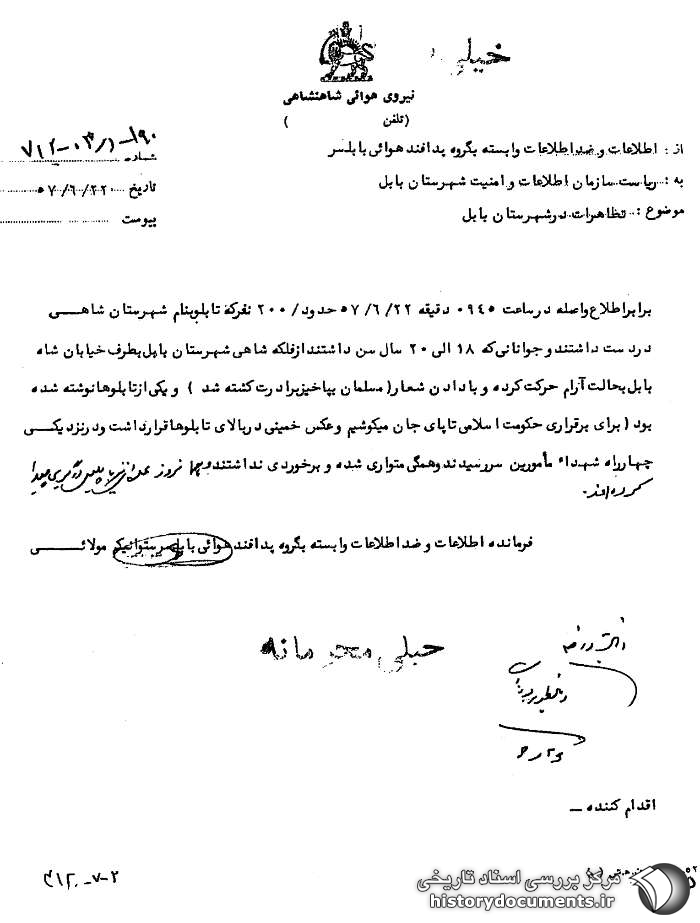 خیلی
نیروی هوائی شاهنشاهی
(تلفن )
از : اطلاعات و ضد اطلاعات وابسته بگروه پدافند هوائی بابلسر
شماره
به : ریاست سازمان اطلاعات و امنیت شهرستان بابل
تاریخ ۵۷/۶/۲۲
موضوع : تظاهرات در شهرستان بابل
پیوست
برابر اطلاع واصله در ساعت ۰۹۴۵ دقیقه ۵۷/۶/۲۲ حدود/ ۲۰۰ نفر که تابلو بنام شهرستان شاهی
در دست داشتند و جوانانی که ۱۸ الی ۲۰ سال سن داشتند از فلکه شاهی شهرستان بابل بطرف خیابان شاه
بابل بحالت آرام حرکت کرده و با دادن شعار ( مسلمان بپاخیز برادرت کشته شد ) و یکی از تابلوها نوشته شده
بود ( برای برقراری حکومت اسلامی تا پای جان میکوشیم و عکس خمینی در بالای تابلوها قرار داشت و در نزدیکی
چهار راه شهداء مأمورین سر رسیدند و همگی متواری شده و برخوردی نداشتند
کرده‌اند.
فرمانده اطلاعات و ضد اطلاعات وابسته بگروه پدافند هوائی بابلسر ستوانیکم مولائی
خیلی محرمانه
اقدام کننده _
۳۱۲-۷-۲
مرکز بررسی اسناد تاریخی
historydocuments.ir